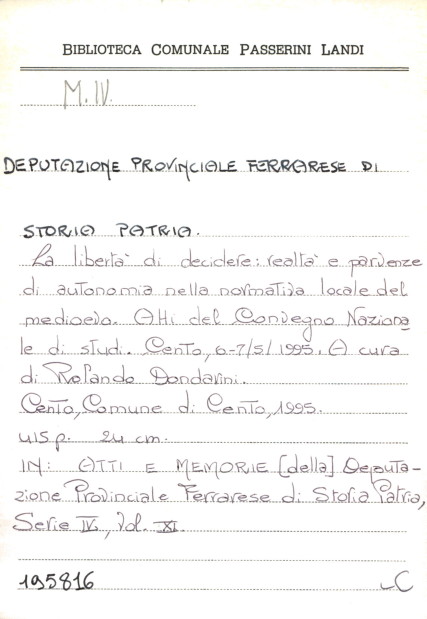 BIBLIOTECA COMUNALE PASSERINI LANDI
M.IV.
DEPUTAZIONE PROVINCIALE FERRARESE DI
STORIA PATRIA.
La libertà di decidere: realtà e parvenze
di autonomia nella normativa locale del
medioevo. Atti del Convegno Naziona
le di studi. Cento, 6-7/5/1995. A cura
di Rolando Dondarini.
Cento, Comune di Cento, 1995.
415 p. 24 cm.
IN: ATTI E MEMORIE [della] Deputa-
zione Provinciale Ferrarese di Storia Patria,
Serie IV, Vol. XI.
195816